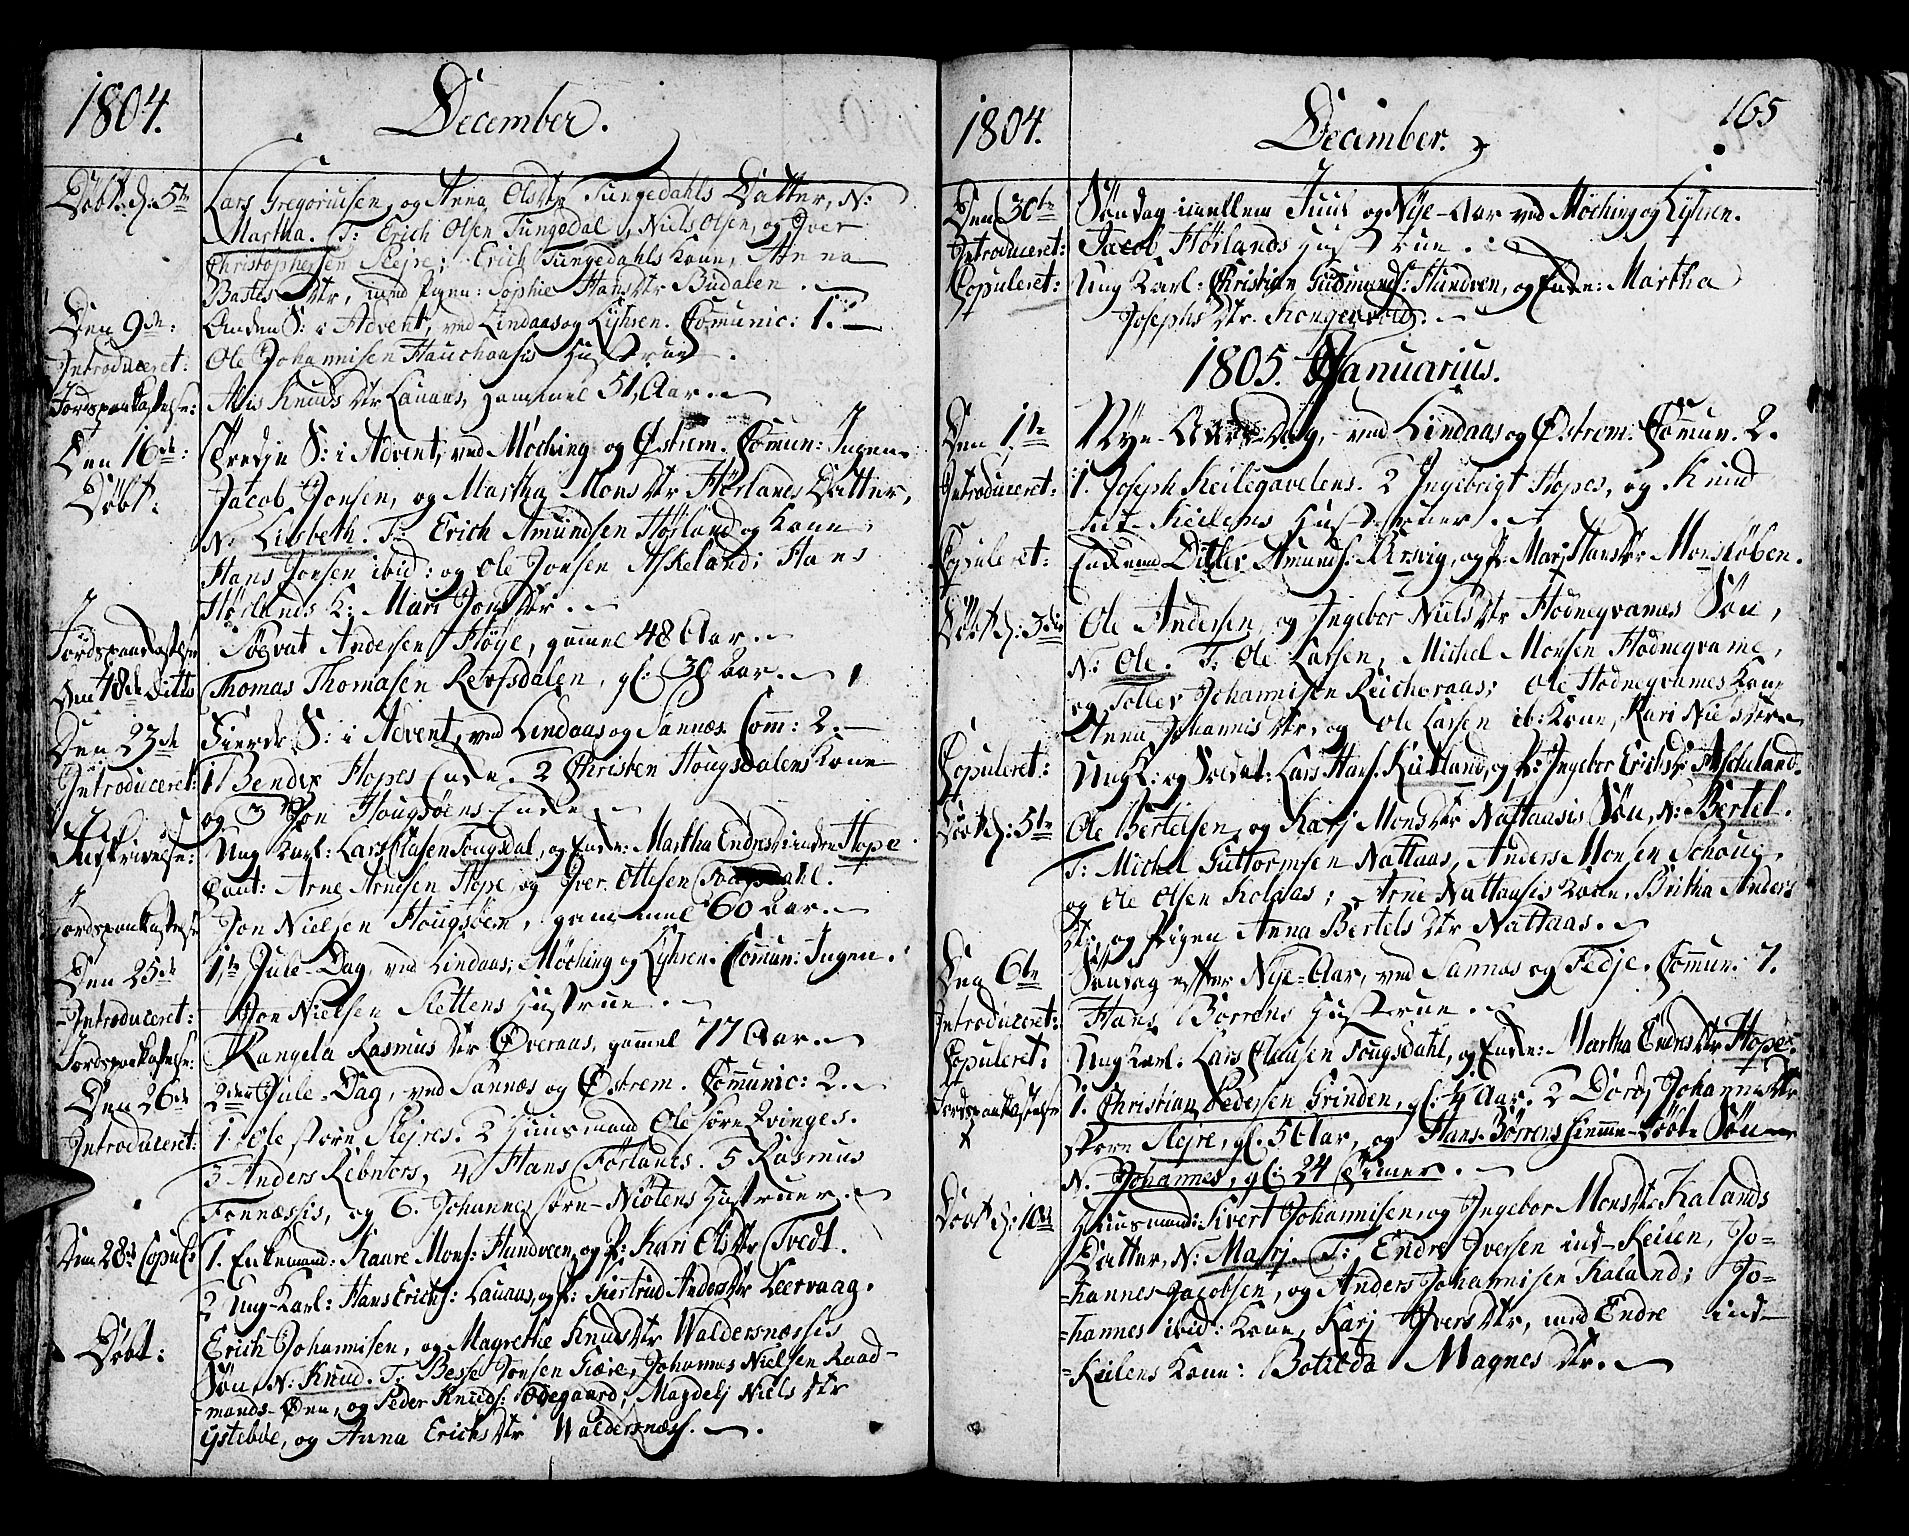 1804.
December.
Døbt d: 5te
Lars Gregoriusen, og Anna Olsdtr Tungedahls Datter, N:
Martha. T: Erich Olsen Tungedal, Niels Olsen, og Iver
Christophersen Slejre; Erich Tungedahls Kone, Anna
Dtr, med Pigen: Sophie Hansdtr Budalen.
Den 9de:
Anden S: i Advent, ved Lindaas og Lyhren. Communic: 1.
Introduceret:
Ole Johannisen Hauchaasis Hustrue.
Jordspaakastelse:
Knudsdtr Lauaas, gammel 51 Aar.
Den 16de:
Tredje S: i Advent, ved Møching og Østrem. Commun: Ingen.
Døbt:
Jacob Jonsen, og Martha Monsdtr Hørlands Datter,
N: Lisbeth. T: Erich Amundsen Hørland og Kone,
Hans Jonsen ibid: og Ole Jonsen Askeland; Hans
Hørlands K: Mari Jonsdtr.
Jordspaakastelse
Andersen Høye, gammel 48 Aar.
Den 18de Ditto
Thomas Thomasen Refsdalen, gl: 30 Aar.
Den 23de
Fierde S: i Advent, ved Lindaas og Sannæs. Comm: 2.
Introduceret:
1 Bendix Hopes Enke. 2 Christen Hougsdalens Kone
og 3 Jon Hougsøens Enke.
Ung Karl: Lars Clasen Fougsdal, og Enke: Martha Endresdtr Hope
Caut: Arne Arnesen Hope, og Iver Ottesen
Jordspaakastelse
Jon Nielsen Hougsøen, gammel 60 Aar.
Den 25de
1te Jule-Dag, ved Lindaas, Møching og Lyhren. Commun: Ingen.
Introduceret:
Jon Nielsen Slettens Hustrue.
Jordspaakastelse:
Rangela Rasmusdtr Øveraas, gammel 77 Aar.
Den 26de
2den Jule-Dag, ved Sannæs og Østrem. Communic: 2.
Introduceret:
1. Ole store Slejres. 2 Huusmand Ole søre Qvinges.
3 Anders 4 Hans Førlands. 5 Rasmus
Fonnæssis, og 6. Johannes søre-Niøtens Hustruer.
Den 28de Copul:
1. Enkemand: Kaare Mons: Hundveen, og P: Kari Olsdtr Tvedt.
2 Ung-Karl: Hans Erichs: Lauaas, og P: Giertrud Andersdtr Leervaag.
Døbt:
Erich Johannisen, og Magrethe Knudsdtr Waldersnæssis
Søn, N: Knud. T: Besse Jonsen Kære, Johannes Nielsen Raad-
mands-Øen, og Peder Knuds: Ødegaard; Magdelj Nielsdtr
Ystebøe, og Anna Erichsdtr Waldersnæss.
1804.
December.
165
Den 30te
Søndag imellem Juul og Nye-Aar ved Møching og Lyhren.
Introduceret:
Jacob Hørlands Hustrue.
Copuleret:
Ung Karl: Christian Gudmunds: Hundven, og Enke: Martha
Josephsdtr Kongensvold.
1805. Januarius.
Den 1te
Nye-Aars Dag, ved Lindaas og Østrem. Commun. 2.
Introduceret:
1. Joseph Keilegavelens. 2 Ingebrigt Hopes, og Knud
Keilens Hustruer.
Copuleret:
Enkemand Ditlev Amunds: og P: Marj Hansdtr Monsløben.
Døbt d: 3die
Ole Andersen, og Ingebor Nielsdtr Hodnegvames Søn,
N: Ole. T: Ole Larsen, Michel Monsen Hodnegvame,
og Toller Johannisen Ole Hodnegvames Kone
Anna Johannisdtr, og Ole Larsen ib: Kone, Kari Nielsdtr
Copuleret:
Ung K: og Soldat: Lars Hans: Kietland, og P: Ingebor Erichsdtr
Døbt d: 5te
Ole Bertelsen, og Karj Monsdtr Nattaasis Søn, N: Bertel.
T: Michel Guttormsen Nattaas, Anders Monsen Schoug,
og Ole Olsen Kolaas; Arne Nattaasis Kone, Britha Anders
Dtr, og Pigen Anna Bertelsdtr Nattaas.
Den 6te
Søndag efter Nye-Aar, ved Sannæs og Fedje. Commun: 7.
Introduceret:
Hans Børrens Hustrue.
Copuleret:
Ung Karl: Lars Clausen Fougsdahl, og Enke: Martha Endresdtr Hope.
Jordspaakastelse
1. Christian Pedersen Grinden, gl: 4 Aar. 2 Dordj Johannesdtr
store Slejre, gl: 51 Aar, og Hans Børrens Hiemme-Døbte Søn
N. Johannes, gl: 24 Timer.
Døbt d: 10de
Huusmand: Sivert Johannisen, og Ingebor Monsdtr Kalands
Datter, N: Marj. T: Endre Iversen ind-Keilen, Jo-
=hannes Jacobsen, og Anders Johannisen Kaland; Jo-
=hannes ibid: Kone, Karj Iversdtr, med Endre ind-
=Keilens Kone: Botilda Magnesdtr.